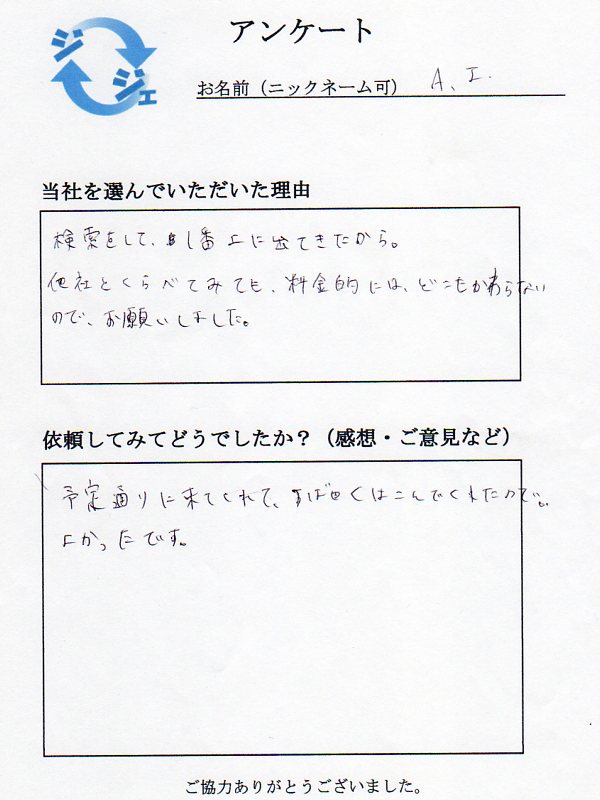 アンケート
ジ
ジェ
お名前（ニックネーム可） A、I.
当社を選んでいただいた理由
検索をして、1番上に出てきたから。
他社とくらべてみても、料金的には、どこもかわらない
ので、お願いしました。
依頼してみてどうでしたか？（感想・ご意見など）
予定通りに来てくれて、すばやくはこんでくれたので。
よかったです。
ご協力ありがとうございました。